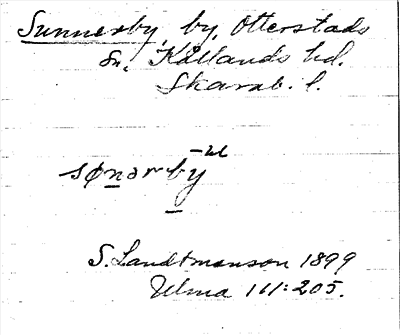 Sunnerby, by, Otterstads
sn, Kållands hd.
Skarab. l.
sønərby
S. Landtmanson 1899
Ulma 111:205.